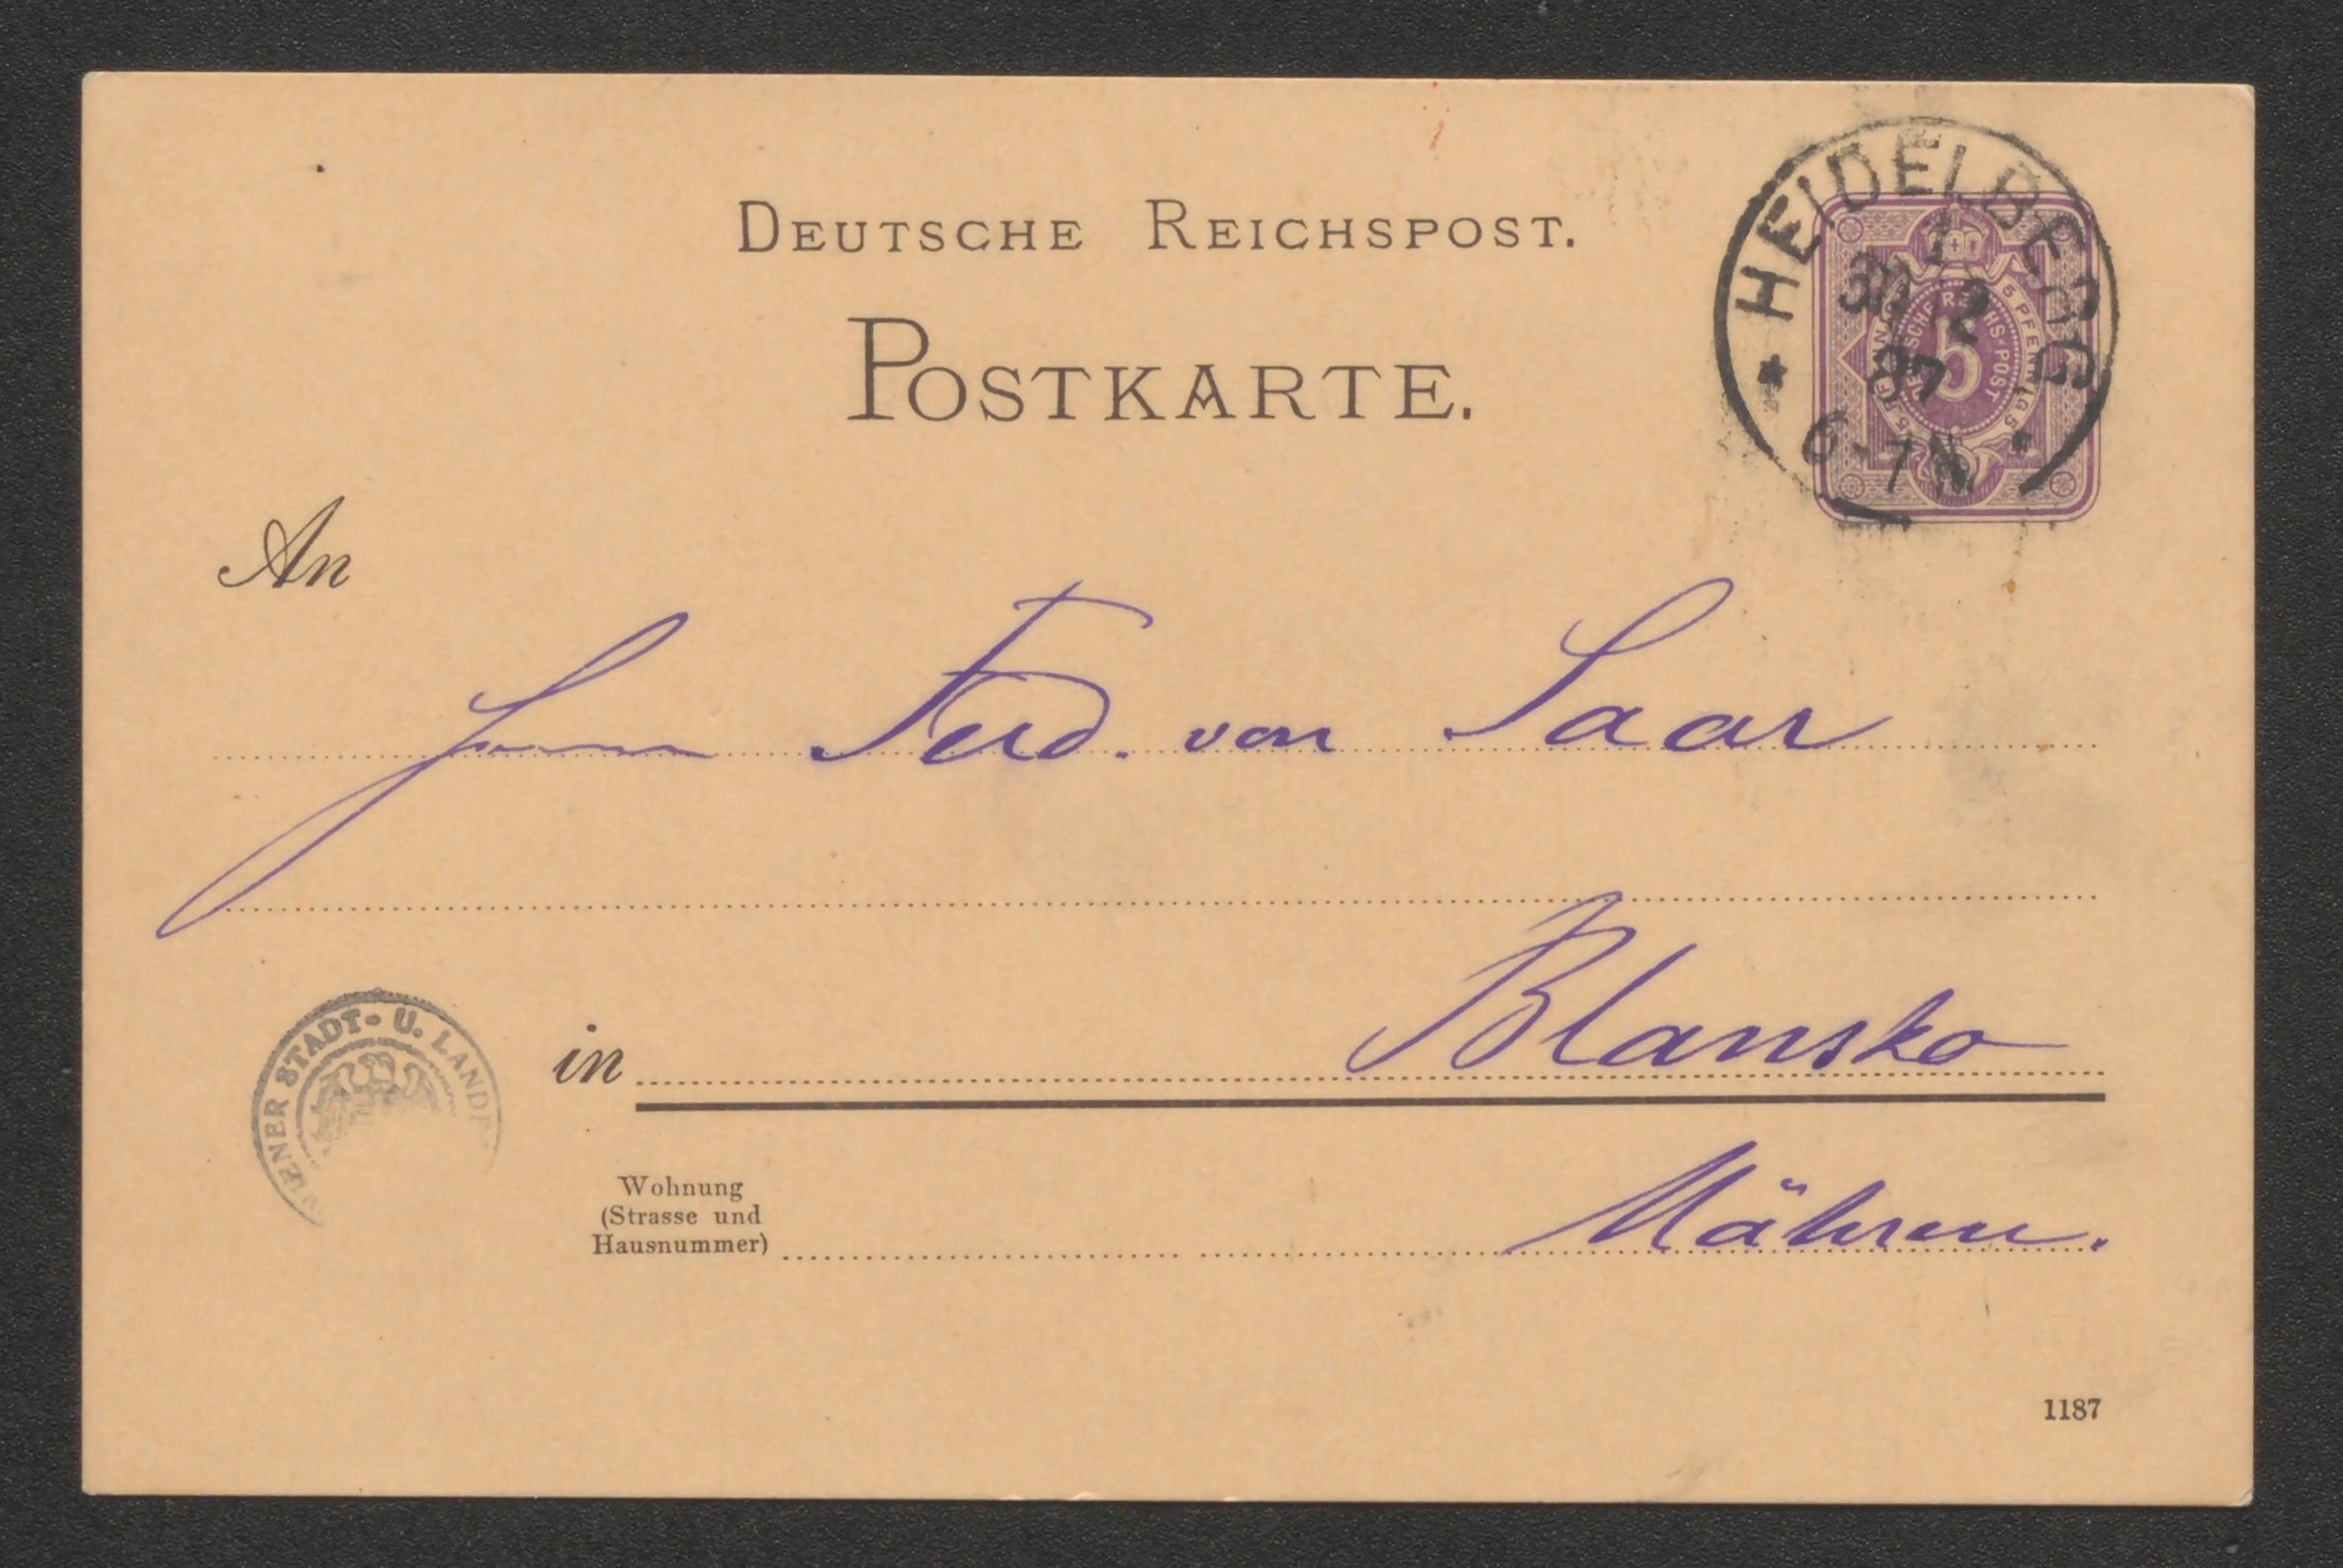 DEUTSCHE REICHSPOST.
POSTKARTE.
HEIDELBERG
1
30 12
87
6-7N
5 PFENNIG 5
DEUTSCHE REICHS-POST
5
An
Herrn Ferd. von Saar
in Blansko
WIENER STADT- U. LANDE
Wohnung
(Strasse und
Hausnummer)
Mähren.
1187